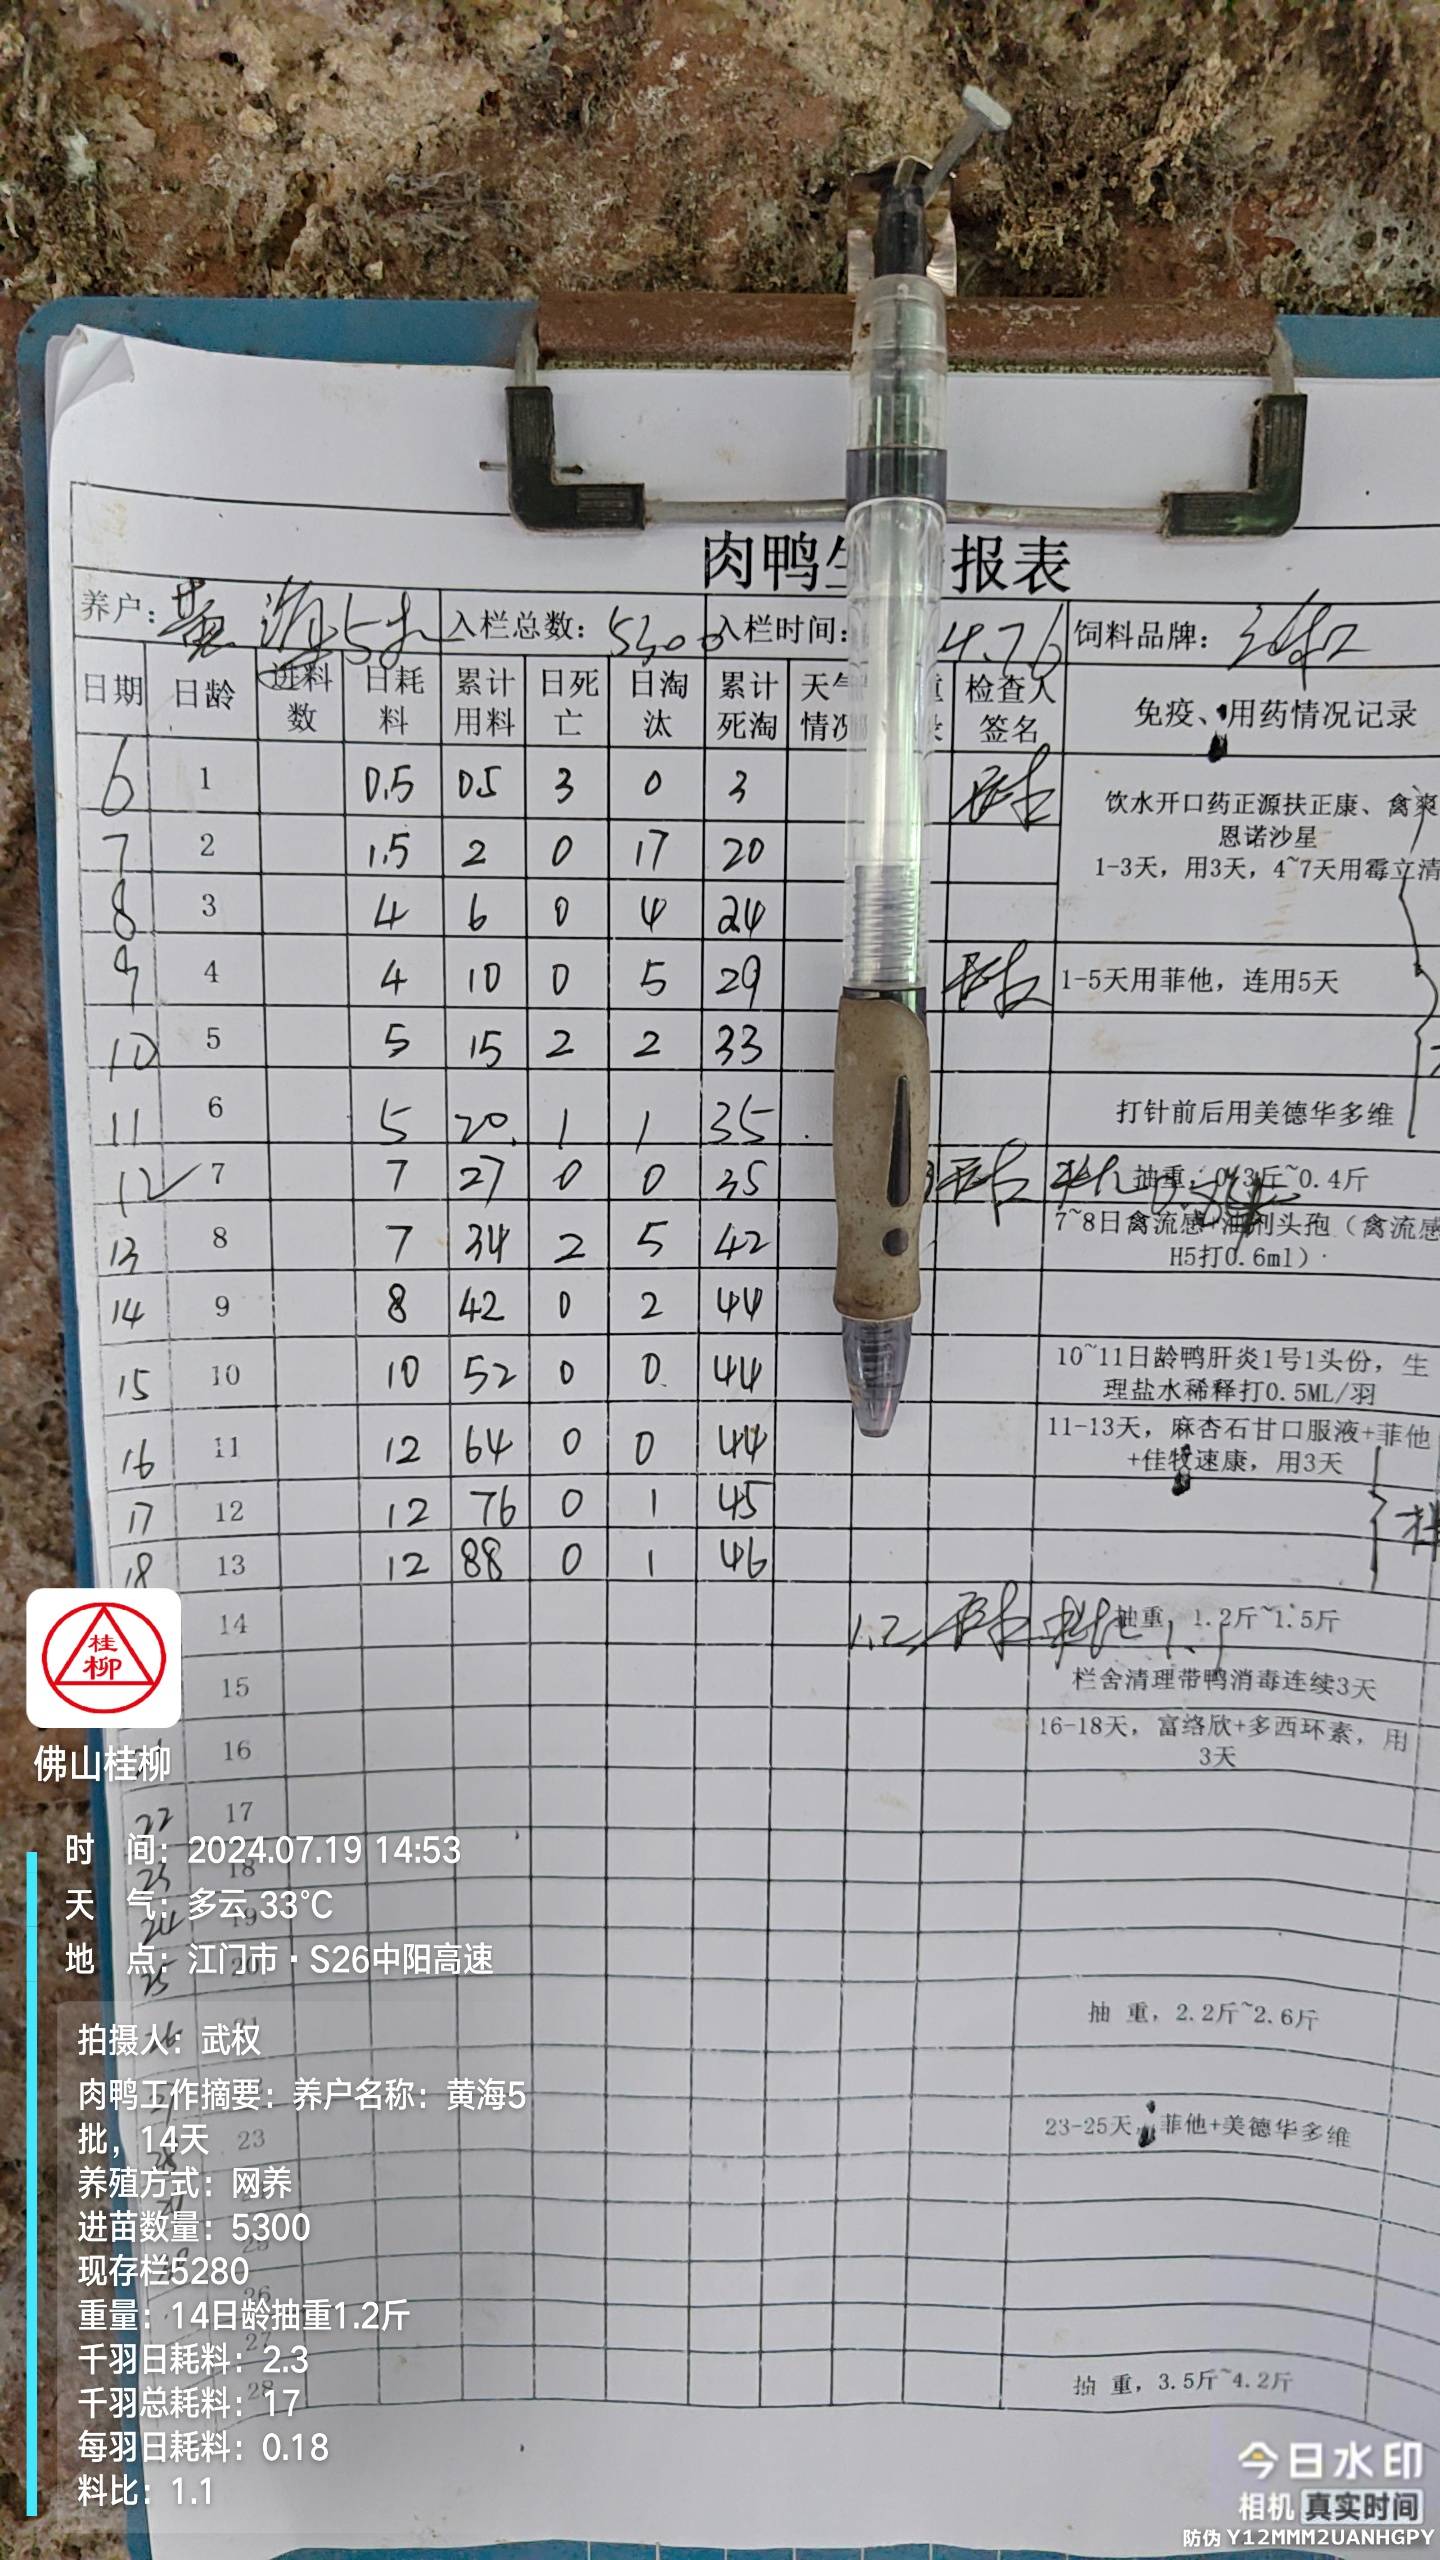 肉鸭生 报表
养户：黄海5 入栏总数：5300 入栏时间： 4.7.6 饲料品牌：
日期 日龄 进料数 日耗料 累计用料 日死亡 日淘汰 累计死淘 天气情况 检查人签名 免疫、用药情况记录
6 1 0.5 0.5 3 0 3
饮水开口药正源扶正康、禽爽
恩诺沙星
1-3天，用3天，4~7天用霉立清
7 2 1.5 2 0 17 20
8 3 4 6 0 4 24
9 4 4 10 0 5 29 1-5天用菲他，连用5天
10 5 5 15 2 2 33
11 6 5 20 1 1 35 打针前后用美德华多维
12 7 7 27 0 0 35 抽重：0.3斤~0.4斤
13 8 7 34 2 5 42 7~8日禽流感+油剂头孢（禽流感
H5打0.6ml）
14 9 8 42 0 2 44
15 10 10 52 0 0 44 10~11日龄鸭肝炎1号1头份，生
理盐水稀释打0.5ML/羽
16 11 12 64 0 0 44 11-13天，麻杏石甘口服液+菲他
+佳牧速康，用3天
17 12 12 76 0 1 45
18 13 12 88 0 1 46
14 1.2 抽重，1.2斤~1.5斤 1.1
15 栏舍清理带鸭消毒连续3天
16 16-18天，富络欣+多西环素，用
3天
22 17
23 18
24 19
25 20
26 21 抽 重，2.2斤~2.6斤
23 23-25天，菲他+美德华多维
25
26
27
28 抽 重，3.5斤~4.2斤
桂柳
佛山桂柳
时 间：2024.07.19 14:53
天 气：多云 33℃
地 点：江门市·S26中阳高速
拍摄人：武权
肉鸭工作摘要：养户名称：黄海5
批，14天
养殖方式：网养
进苗数量：5300
现存栏5280
重量：14日龄抽重1.2斤
千羽日耗料：2.3
千羽总耗料：17
每羽日耗料：0.18
料比：1.1
今日水印
相机 真实时间
防伪 Y12MMM2UANHGPY